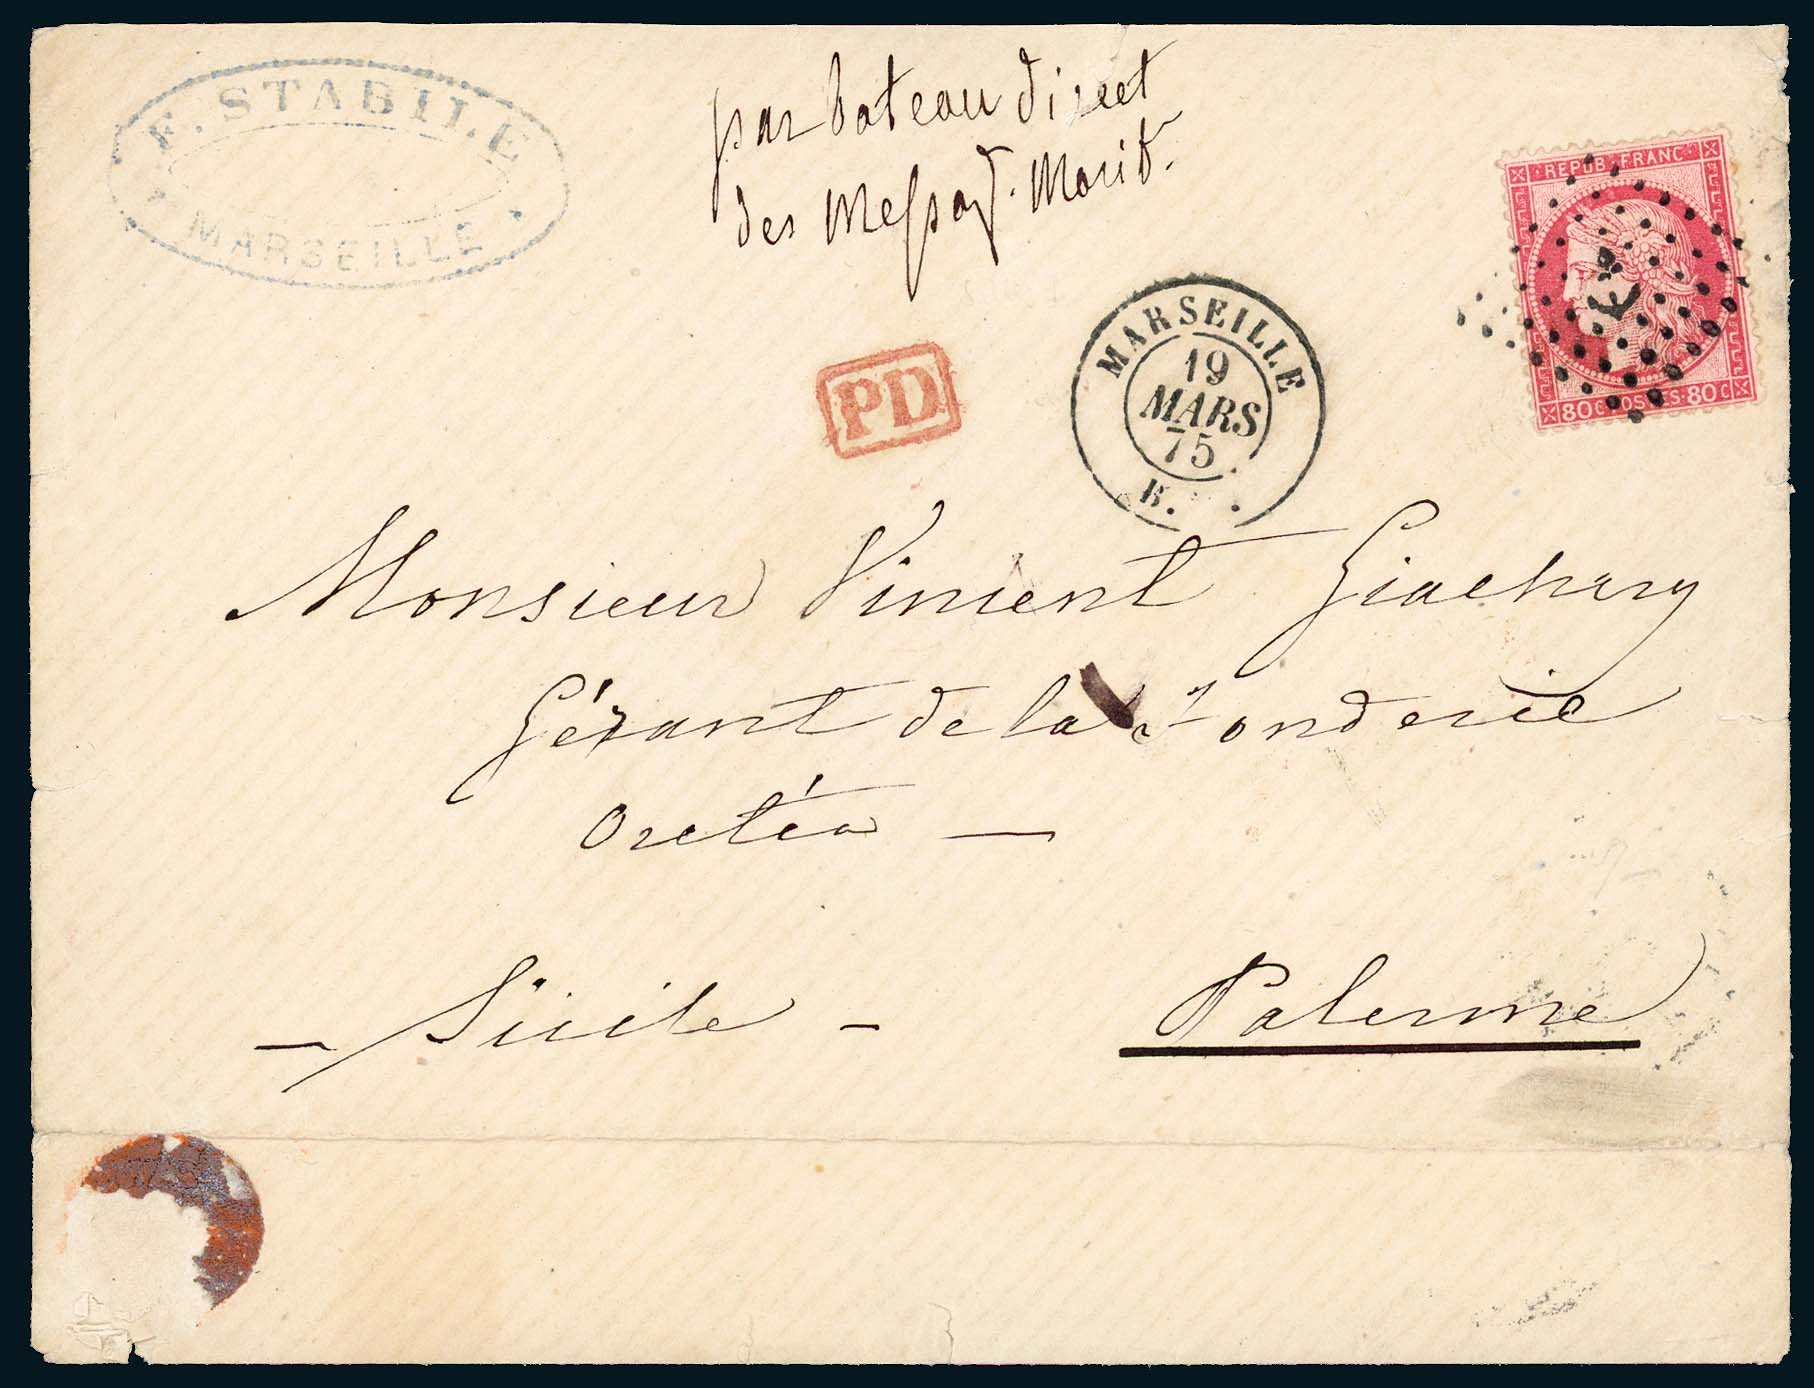 F. STABILE
MARSEILLE
par bateau direct
des Messag. Marit.
REPUB. FRANC.
80 C POSTES 80 C
PD
MARSEILLE
19
MARS
75
B.
Monsieur Vincent Giachery
Gérant de la Fonderie
Oretéa —
— Sicile — Palerme